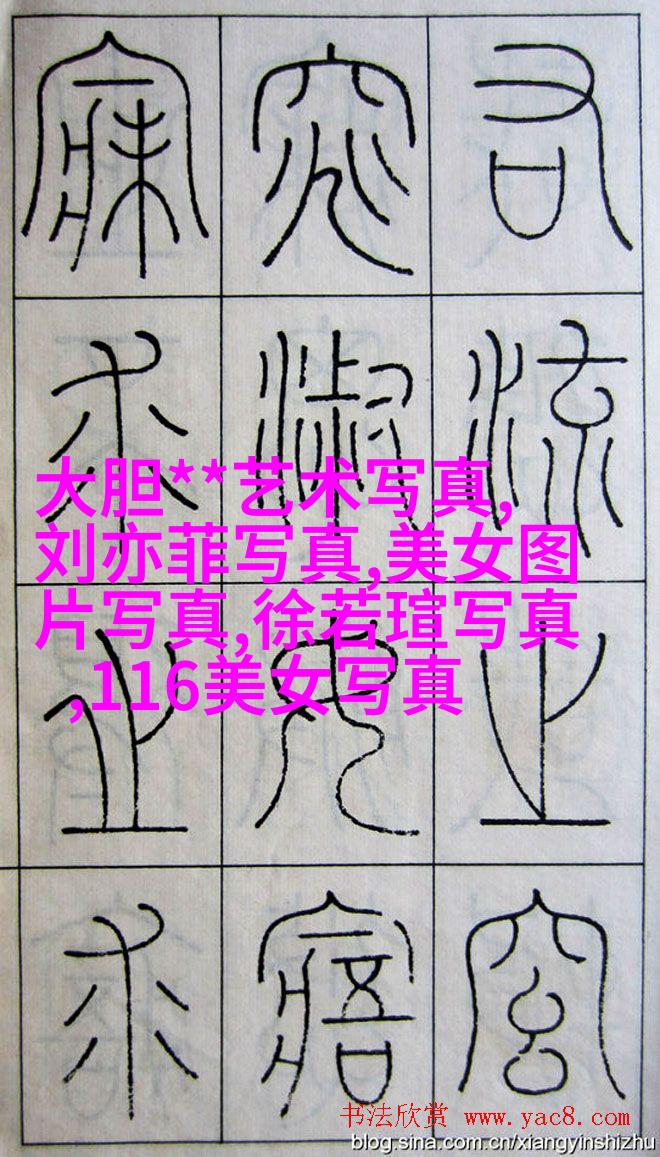 右流之窈
窕淑女寤
寐求之求
大胆**艺术写真,
刘亦菲写真,美女图
片写真,徐若瑄写真
,116美女写真
书法欣赏 www.yac8.com
blog.sina.com.cn/xiangyinshizhu